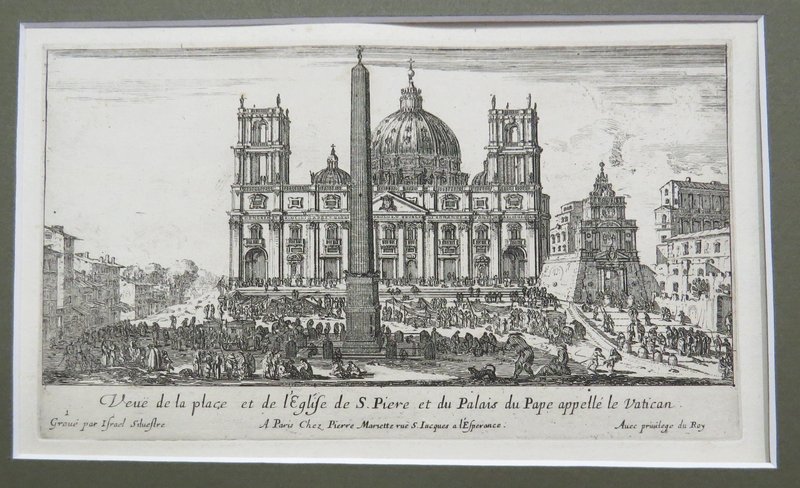 Veuë de la place et de l'Eglise de S. Piere et du Palais du Pape appellé le Vatican.
1
Graué par Israel Siluestre A Paris Chez Pierre Mariette ruë S. Iacques a l'Esperance. Auec priuilege du Roy